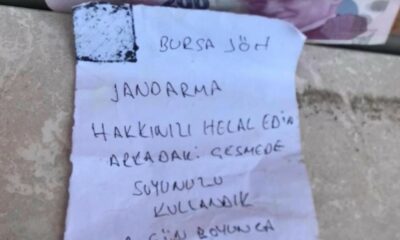 BURSA JÖH
JANDARMA
HAKKINIZI HELAL EDİN
ARKADAKİ ÇEŞMEDE
SUYUNUZU
KULLANDIK
GÜN BOYUNCA